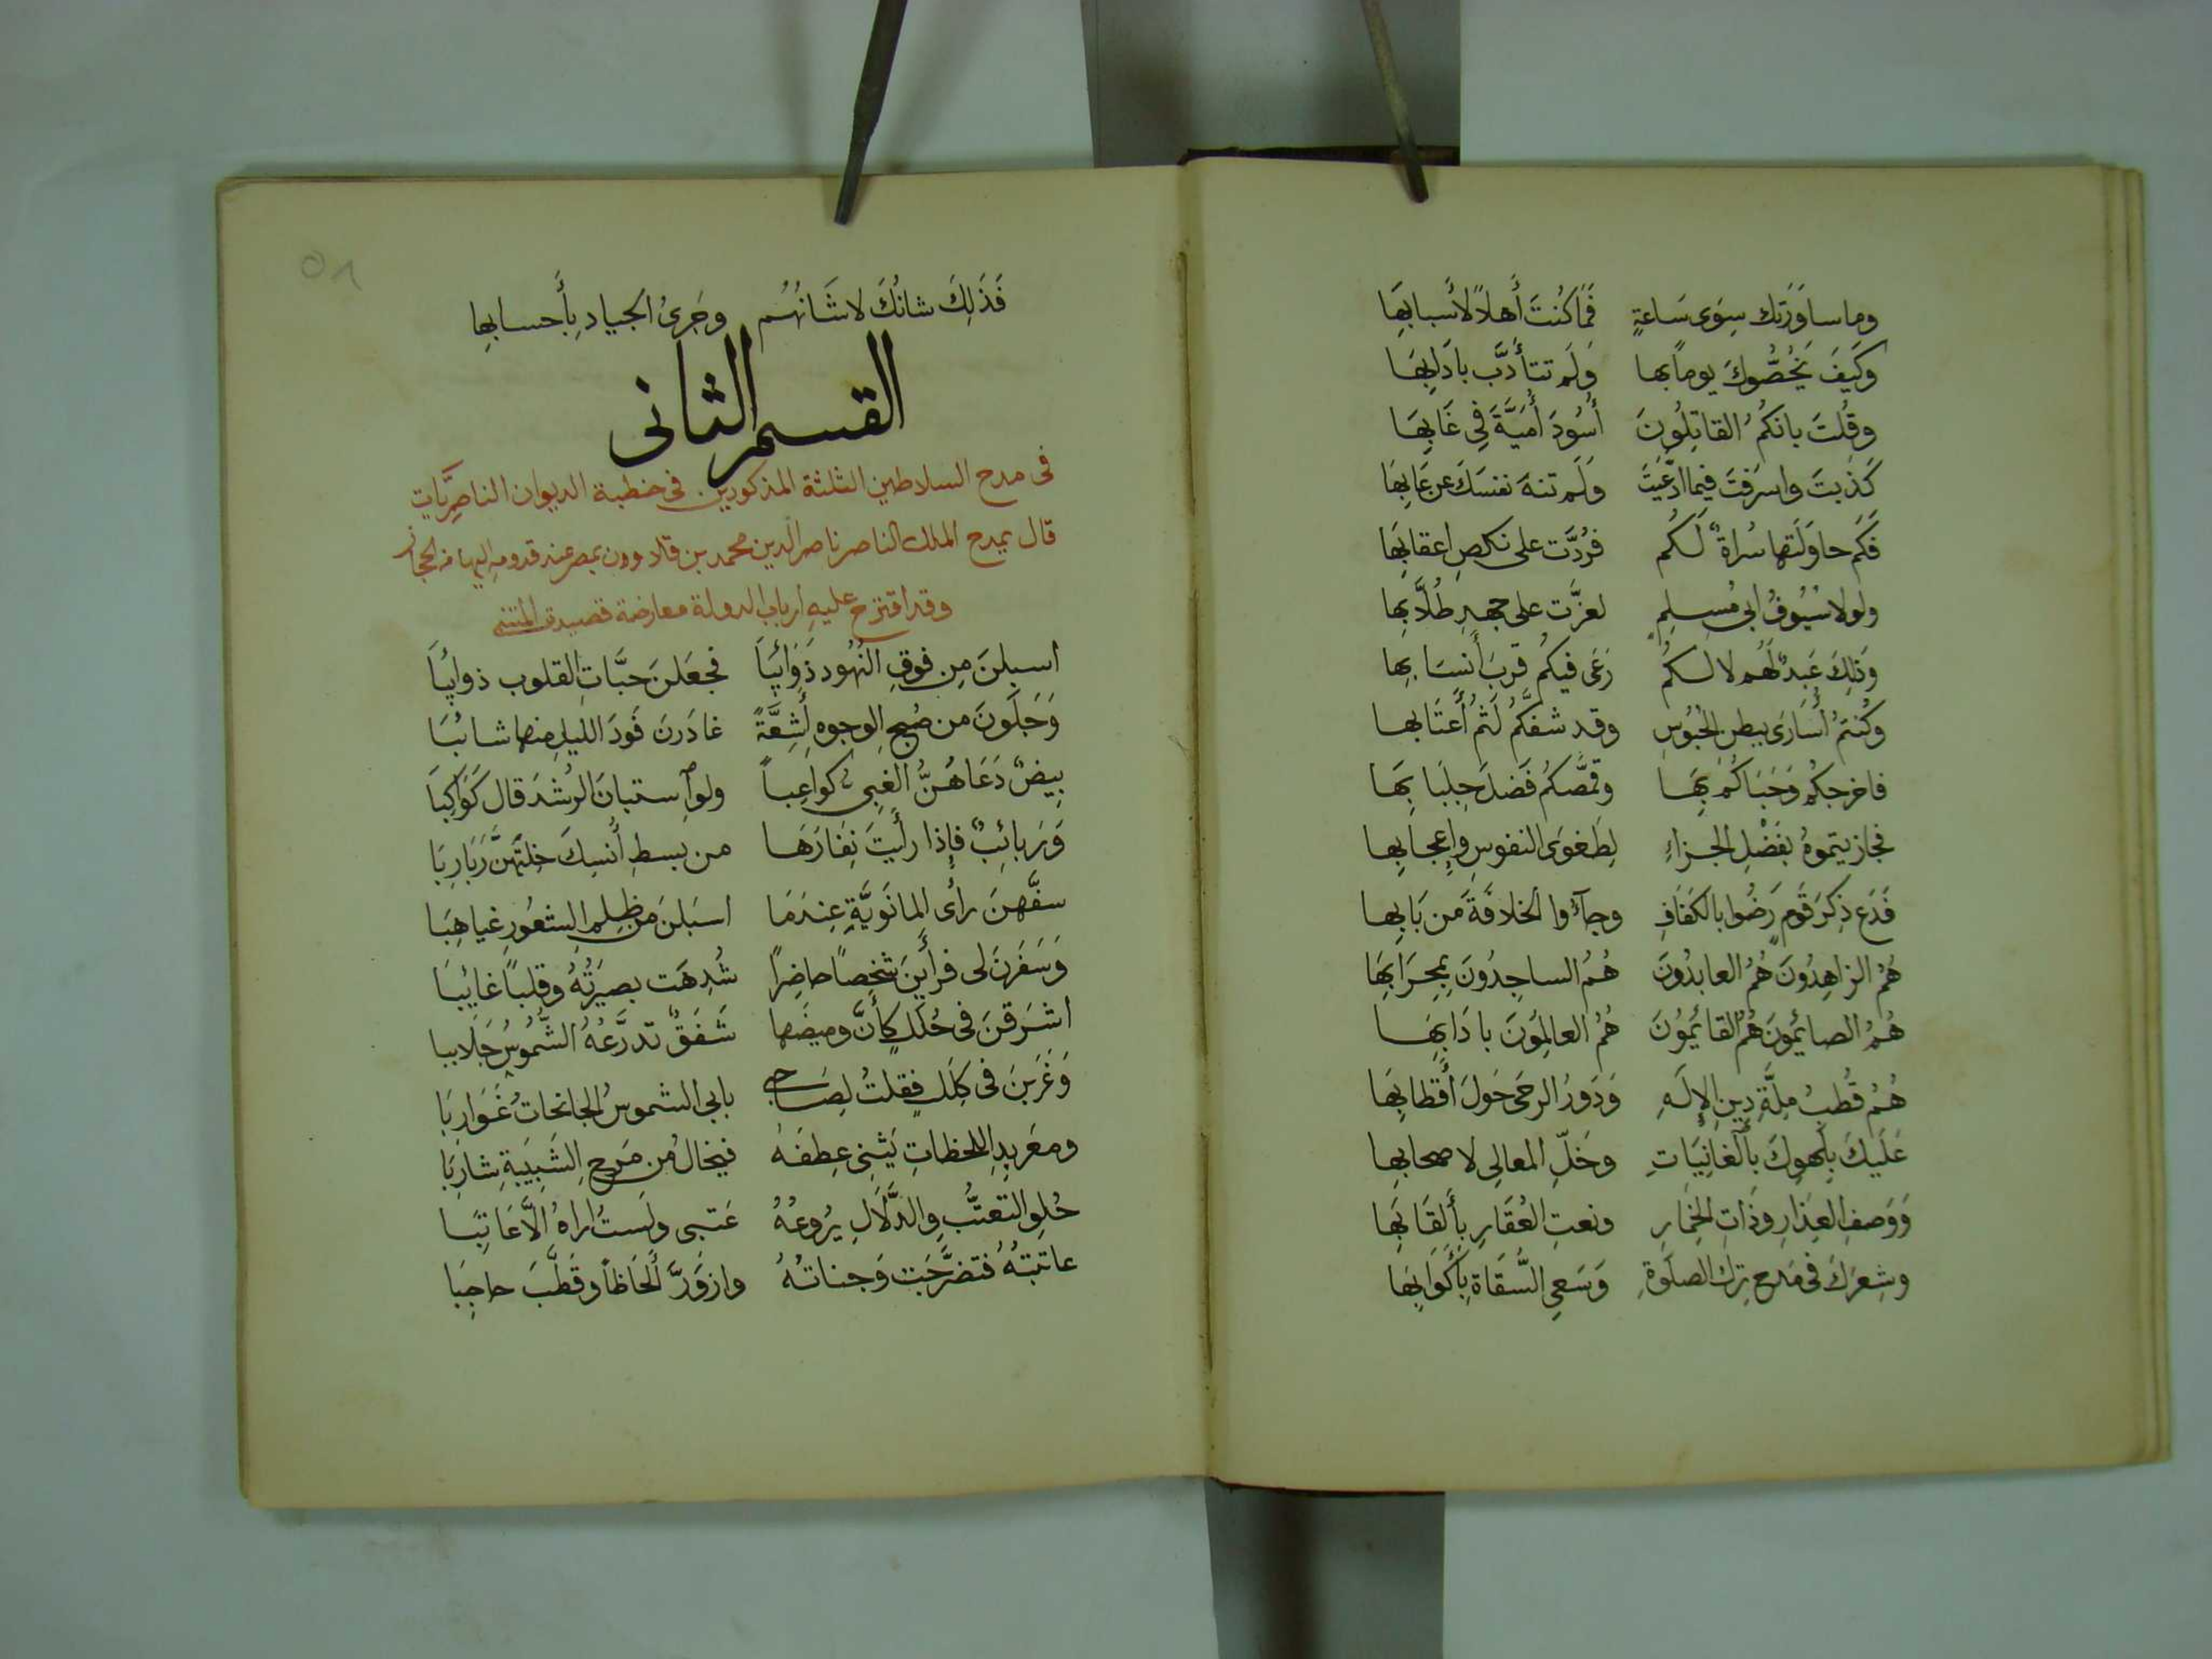 وما ساوَرَتك سِوَى سَاعةٍ فَمَا كُنتَ أَهلاً لأسبابِهَا
وَكَيفَ يَخُصُّوكَ يوماً بها وَلَم تتأَدَّب بادَابِهَا
وقُلتَ بانكُمُ القاتِلُونَ أُسُودَ أُمَيَّةَ فِي غَابِهَا
كَذَبتَ واسرَفتَ فيما ادَّعَيتَ وَلَم تنهَ نفسَكَ عن عَابِهَا
فَكَم حاوَلَتها سُراةٌ لَكُم فرُدَّت على نكصِ اعقابِهَا
ولولا سُيُوفُ ابى مُسلِمٍ لعزَّت على جهدِ طُلَّابِها
وَذلِكَ عَبدٌ لَهُم لا لكم رَعَى فيكُم قربَ أَنسَابِها
وكُنتُم أُسَارَى ببطنِ الحُبُوسِ وقد شفَّكُم لَثمُ أَعتَابها
فاخرجكُم وَحَبَاكُم بِهَا وقمَّصكُم فَضلَ جِلبَابِهَا
فجازيتموهُ بفَضْلِ الجزاءِ لِطَغوَى النفوسِ وإِعجابِها
فَدَع ذِكرَ قَومٍ رَضُوا بالكَفَافِ وجآءُوا الخلافَةَ من بَابِها
هُمُ الزاهِدُونَ هُمُ العابدُونَ هُمُ الساجِدُونَ بِمِحرَابِهَا
هُمُ الصائِمُونَ هُمُ القائِمُونَ هُمُ العالِمُونَ بادَابِهَا
هُمُ قُطبُ مِلَّةِ دِينِ الإِلَهِ وَدَورُ الرحَى حَولَ أَقطابِهَا
عَلَيكَ بِلَهوِكَ بِالغانِيَاتِ وَخَلِّ المعالِى لاصحابِها
وَوَصفِ العِذَارِ وذَاتِ الخِمارِ ونعتِ العُقَارِ بأَلقَابِهَا
وشِعرُكَ فى مَدحِ تركِ الصلَوةِ وَسَعىِ السُّقَاةِ بِأَكوَابِهَا
٥٨
فَذَلِكَ شانُكَ لا شَانُهُم وجَرىُ الجيادِ بِأَحسابِهِا
القسم الثانى
فى مدح السلاطين الثلثة المذكورين فى خطبة الديوان الناصريَّات
قال يمدح الملك الناصر ناصر الدين محمد بن قلاوون بمصر عند قدومهِ اليها من الحجاز
وقد اقترح عليهِ ارباب الدولة معارضة قصيدة المتنبى
اسبلنَ مِن فوقِ النُهُودِ ذَوَائِبَا فجعَلنَ حَبَّاتِ القلوبِ ذوايِبَا
وَجَلَونَ من صُبحِ الوجوهِ أَشِعَّةً غادَرنَ فَودَ الليلِ منها شائبَا
بِيضٌ دَعَاهُنَّ الغبِى كواعِباً ولوِ استبانَ الرُشدَ قال كَوَاكِبَا
وَرَبائِبٌ فإذا رأَيتَ نِفَارَهَا من بسطِ أُنسِكَ خلتَهنَّ رَبَارِبَا
سفَّهنَ رأىَ المانَوِيَّةِ عِندَمَا اسبَلنَ من ظلمِ الشعُورِ غياهِبَا
وَسَفَرنَ لى فرأَينَ شخصاً حاضِراً شُدِهَت بصِيرَتُهُ وقلباً غائِبَا
اشرَقنَ فى حُلَلٍ كأَنَّ وميضَها شَفَقٌ تدَرَّعَهُ الشُّمُوسُ جَلَاببا
وَغَرَبنَ فى كِلَلٍ فقلتُ لِصَاحبى بابى الشموسُ الجانحاتُ غَوَارِبَا
ومعَربِدِ اللحظاتِ يَثنِى عِطفَهُ فيخالُ من مَرحِ الشَبِيبَةِ شارِبَا
حُلوِ التعتُّبِ والدَّلَالِ يرُوعُهُ عَتبى ولَستُ اراهُ إلَّا عَاتِبَا
عاتبتهُ فتضرَّجَت وَجناتُهُ وازوَرَّ أَلحَاظاً وقَطَّبَ حاجِبَا